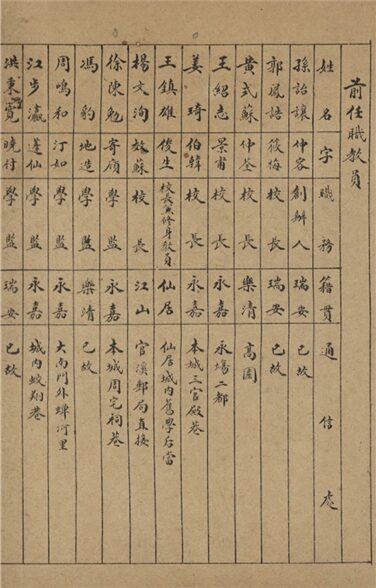 前任職教員
姓名 字 職務 籍貫 通信處
孫詒讓 仲容 創辦人 瑞安 已故
郭鳳誥 筱梅 校長 瑞安 已故
黃式蘇 仲荃 校長 樂清 高園
王紹志 景甫 校長 永嘉 永場二都
姜琦 伯韓 校長 永嘉 本城三官殿巷
王鎮雄 俊生 校長兼修身教員 仙居 仙居城內舊學后當
楊文洵 效蘇 校長 江山 官溪郵局直接
徐陳勉 寄嶺 學監 永嘉 本城周宅祠巷
馮豹 地造 學監 樂清 已故
周鳴和 汀如 學監 永嘉 大南門外竦河里
江步瀛 蓬仙 學監 永嘉 城內蛟翔巷
洪秉寬 曉村 學監 瑞安 已故